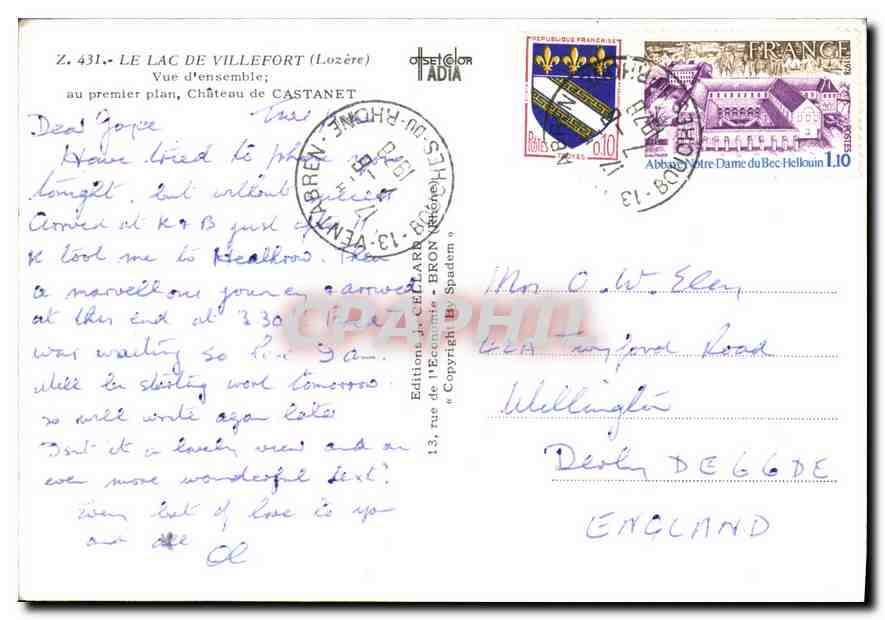 Z. 431.- LE LAC DE VILLEFORT (Lozère)
Vue d'ensemble;
au premier plan, Château de CASTANET
OFFSET COLOR
IADIA
Dear Joyce
Have tried to phone
tonight, but without
Arrived at K & B just
K took me to Heathrow. Then
a marvellous journey & arrived
at this end at 3.30
was waiting so
Will be starting work tomorrow
so will write again later
Isn't it a lovely view and an
even more wonderful text?
Every bit of love to you
and all
Editions J. CELLARD
13, rue de l'Economie. BRON (Rhône)
« Copyright By Spadem »
13-VENTABREN
BOUCHES-DU-RHONE
17
1978
REPUBLIQUE FRANÇAISE
POSTES
0,10
TROYES
FRANCE
1978
POSTES
Abbaye Notre-Dame du Bec-Hellouin 1,10
Mrs O. W. Eley
Twyford Road
Wellington
Derby DE6 6DE
ENGLAND
CPAPHIL